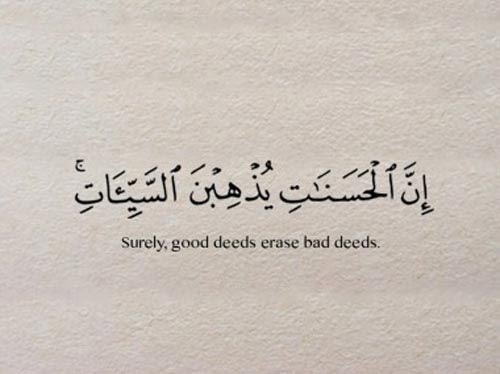 إِنَّ ٱلْحَسَنَـٰتِ يُذْهِبْنَ ٱلسَّيِّـَٔاتِ ۚ
Surely, good deeds erase bad deeds.